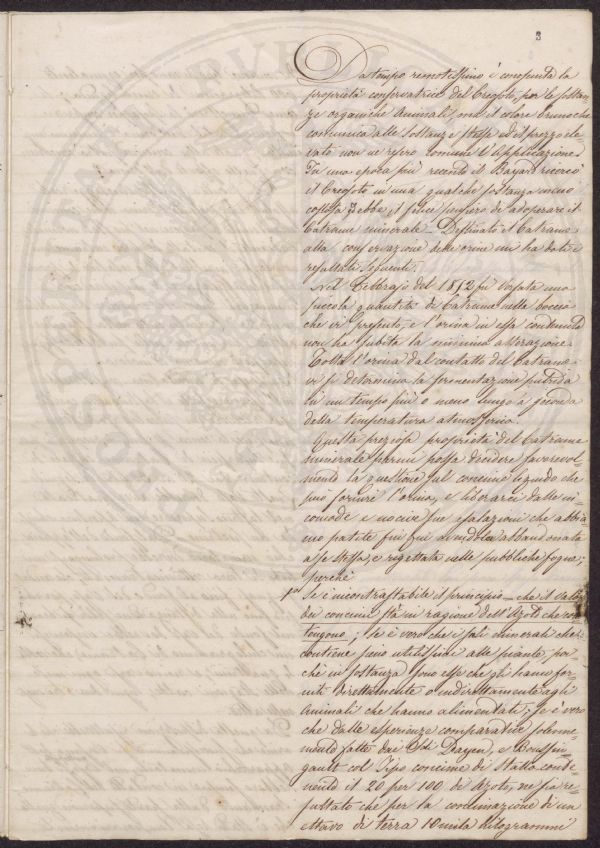 3
Da tempo remotissimo è conosciuta la
proprietà conservatrice del Creosoto, per le sostan=
ze organiche Animali, ma il colore bruno che
comunica alle sostanze stesse ed il prezzo ele=
vato non ne resero comune l'Applicazione.
In una epoca più recente il Bayard ricercò
il Creosoto in una qualche sostanza meno
costosa ed ebbe il felice pensiero di adoperare il
Catrame minerale. Destinato il Catrame
alla conservazione delle orine mi ha dati i
resultati seguenti.
Nel Febbrajo del 1852 fu versata una
piccola quantità di Catrame nella boccia
che vi presento, e l'orina in essa contenuta
non ha subita la minima alterazione.
Tolta l'orina dal contatto del Catrame
vi si determina la fermentazione putrida
in un tempo più o meno lungo a seconda
della temperatura atmosferica.
Questa preziosa proprietà del Catrame
minerale parmi possa decidere favorevol=
mente la questione sul concime liquido che
può fornire l'orina, e liberarci dalle in=
comode e nocive sue esalazioni che abbia=
mo patite fin qui avendola abbandonata
a se stessa, e rigettata nelle pubbliche fogne;
perchè
1º Se è incontrastabile il principio - che il valor
dei concimi stà in ragione dell'Azoto che con=
tengono; Se è vero che i sali minerali che
contiene sono utilissimi alle piante, poi=
chè in sostanza sono esse che gli hanno for=
niti direttamente o indirettamente agli
animali che hanno alimentate; Se è vero
che dalle esperienze comparative solenne=
mente fatte dai Sigi Payen, e Boussin=
gault col Tipo concime di Stalla conte=
nente il 20 per 100 di Azoto, ne sia re=
sultato che per la concimazione di un
ettaro di terra 10 mila Kilogrammi